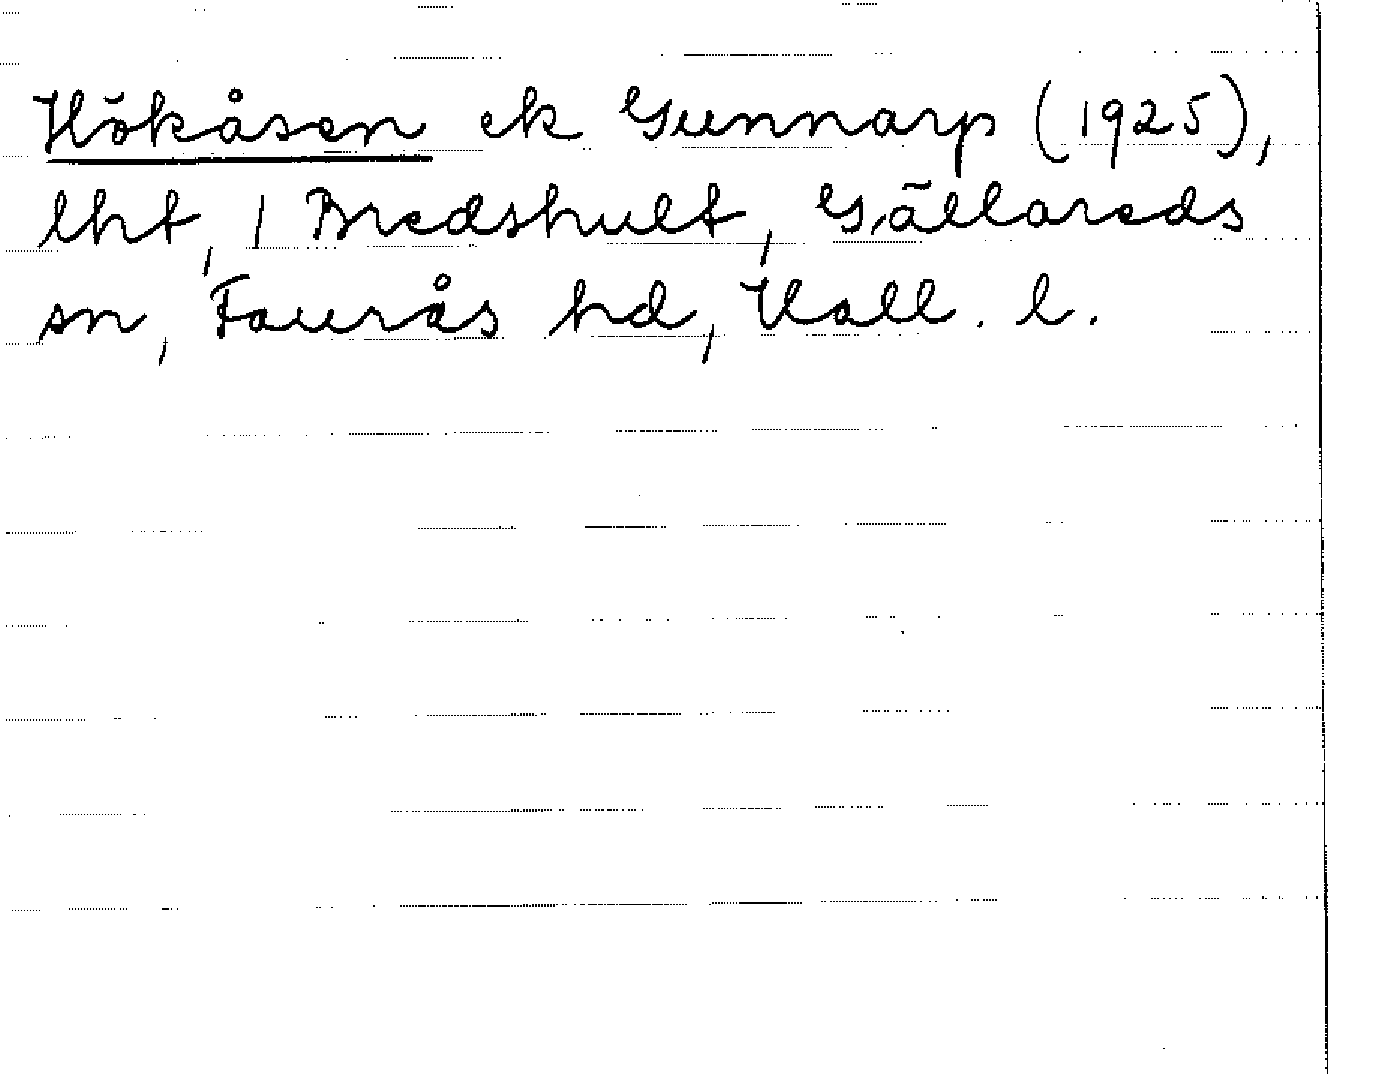 Hökåsen ek Gunnarp (1925),
lht, 1 Bredshult, Gällareds
sn, Faurås hd, Hall. l.